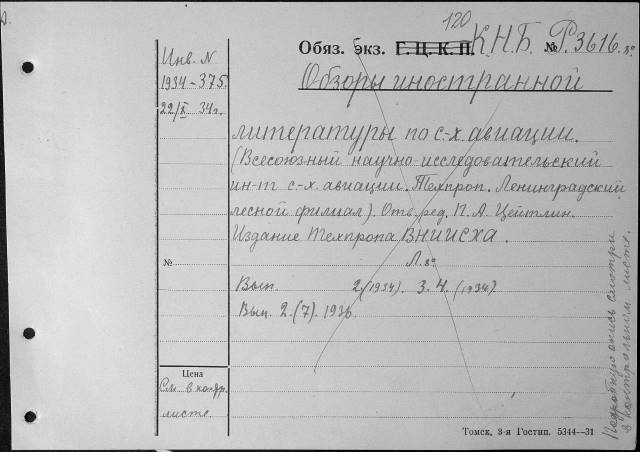 120
Обяз. экз. Г. Ц. К. П. К.Н.Б. № Р.3616. 8°
Инв. N
1934-375.
22/X 34г.
Обзоры иностранной
литературы по с-х. авиации.
(Всесоюзный научно-исследовательский
ин-т с-х. авиации. Техпроп. Ленинградский
лесной филиал). Отв. ред. П. А. Цейтлин.
Издание Техпропа ВНИИСХА.
№
Л. 8°
Вып. 2 (1934). 3. 4. (1934).
Вып. 2. (7). 1936.
Цена
См. в контр.
листе.
Подробную опись смотри
в контрольном листе.
Томск, 3-я Гостип. 5344—31